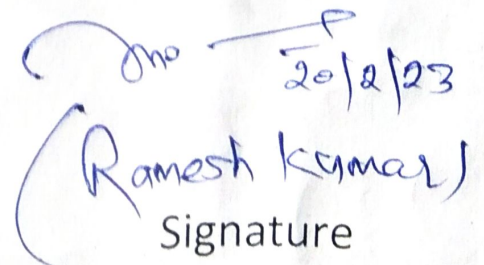 20/2/23
(Ramesh Kumar)
Signature